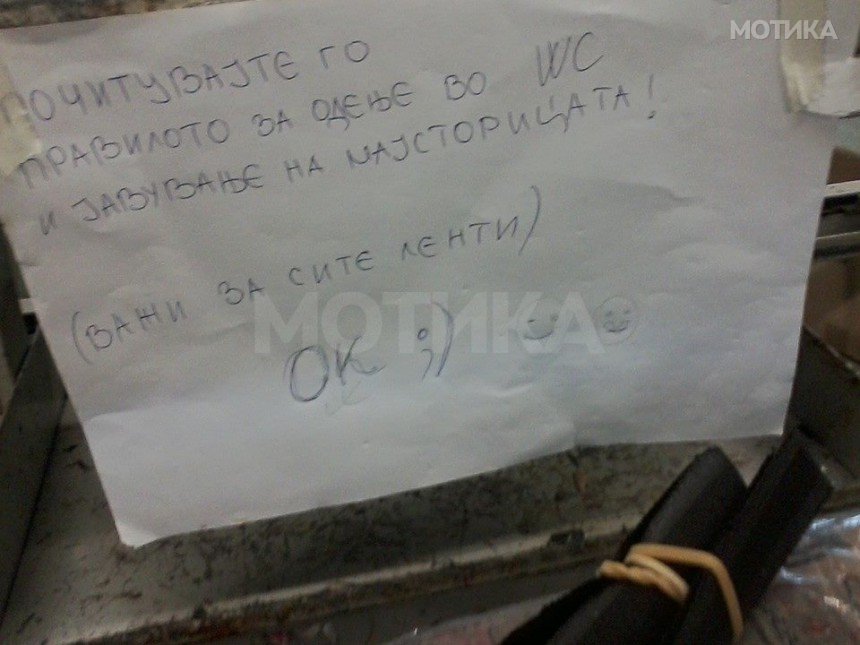 МОТИКА
ПОЧИТУВАЈТЕ ГО
ПРАВИЛОТО ЗА ОДЕЊЕ ВО WC
И ЈАВУВАЊЕ НА МАЈСТОРИЦАТА!
(ВАЖИ ЗА СИТЕ ЛЕНТИ)
МОТИКА
ОК ;)